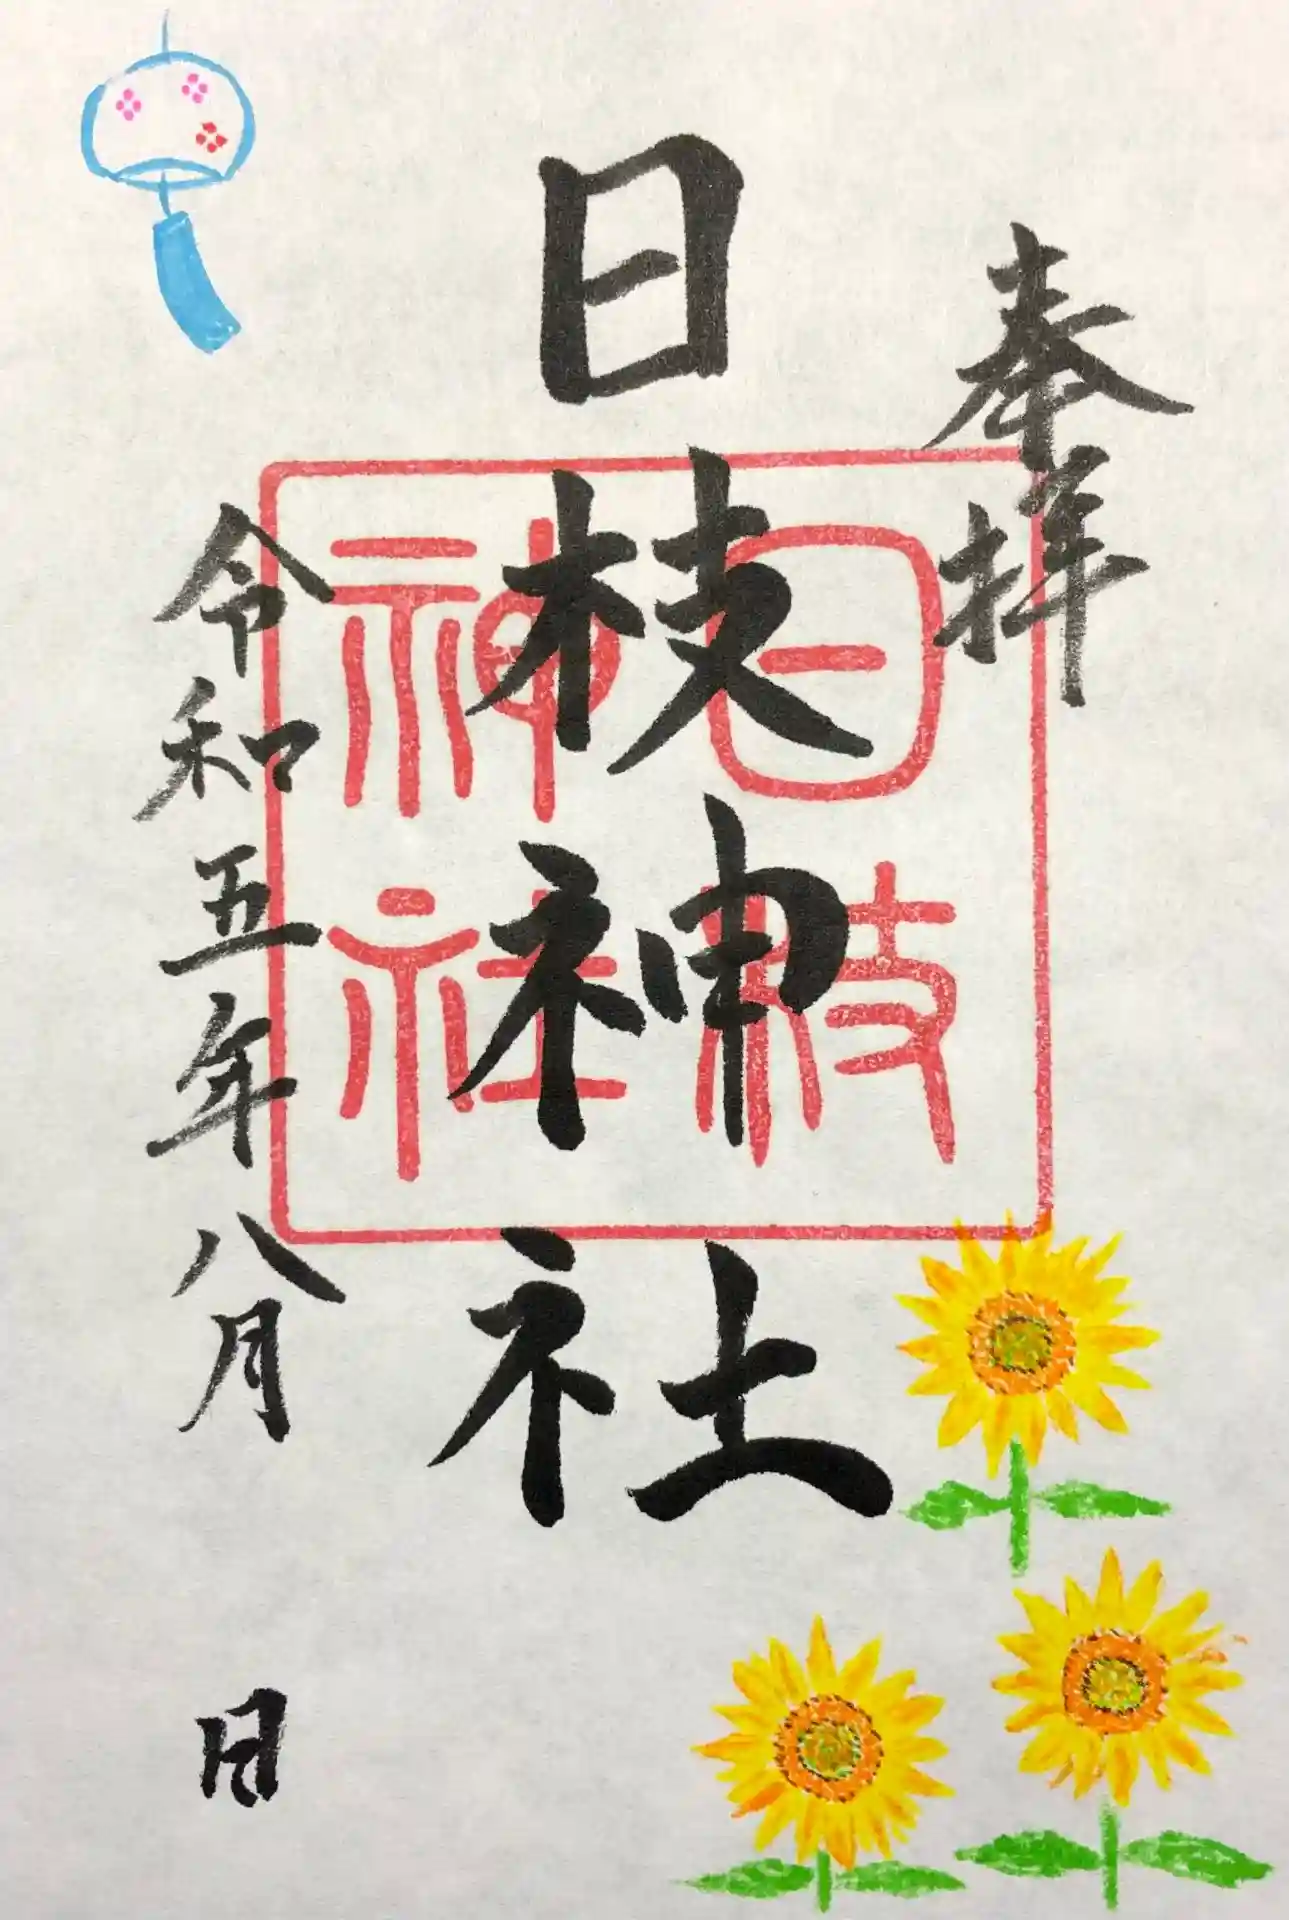 奉拝
日枝神社
日枝
神社
令和五年八月 日